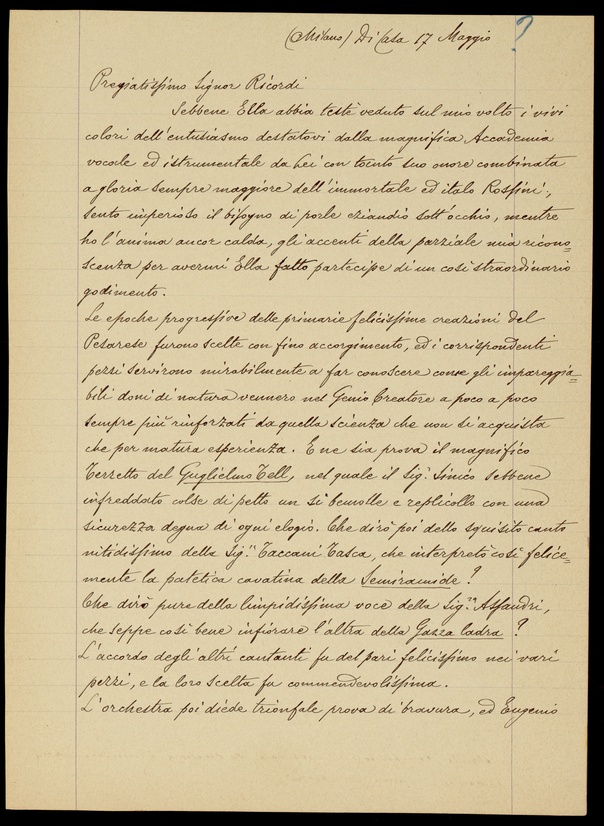 (Milano) Di Casa 17 Maggio ?
Pregiatissimo Signor Ricordi
Sebbene Ella abbia testè veduto sul mio volto i vivi
colori dell'entusiasmo destatovi dalla magnifica Accademia
vocale ed istrumentale da Lei con tanto suo onore combinata
a gloria sempre maggiore dell'immortale ed italo Rossini,
sento imperioso il bisogno di porle eziandio sott'occhio, mentre
ho l'anima ancor calda, gli accenti della parziale mia ricono=
scenza per avermi Ella fatto partecipe di un così straordinario
godimento.
Le epoche progressive delle primarie felicissime creazioni del
Pesarese furono scelte con fino accorgimento, ed i corrispondenti
pezzi servirono mirabilmente a far conoscere come gli impareggia=
bili doni di natura vennero nel Genio Creatore a poco a poco
sempre più rinforzati da quella scienza che non si acquista
che per matura esperienza. E ne sia prova il magnifico
Terzetto del Guglielmo Tell, nel quale il Sigr. Sinico sebbene
infreddato colse di petto un si bemolle e replicollo con una
sicurezza degna di ogni elogio. Che dirò poi dello squisito canto
nitidissimo della Sigra Taccani Tasca, che interpretò così felice=
mente la patetica cavatina della Semiramide ?
Che dirò pure della limpidissima voce della Sigra Assandri,
che seppe così bene infiorare l'altra della Gazza ladra ?
L'accordo degli altri cantanti fu del pari felicissimo nei vari
pezzi, e la loro scelta fu commendevolissima.
L'orchestra poi diede trionfale prova di bravura, ed Eugenio